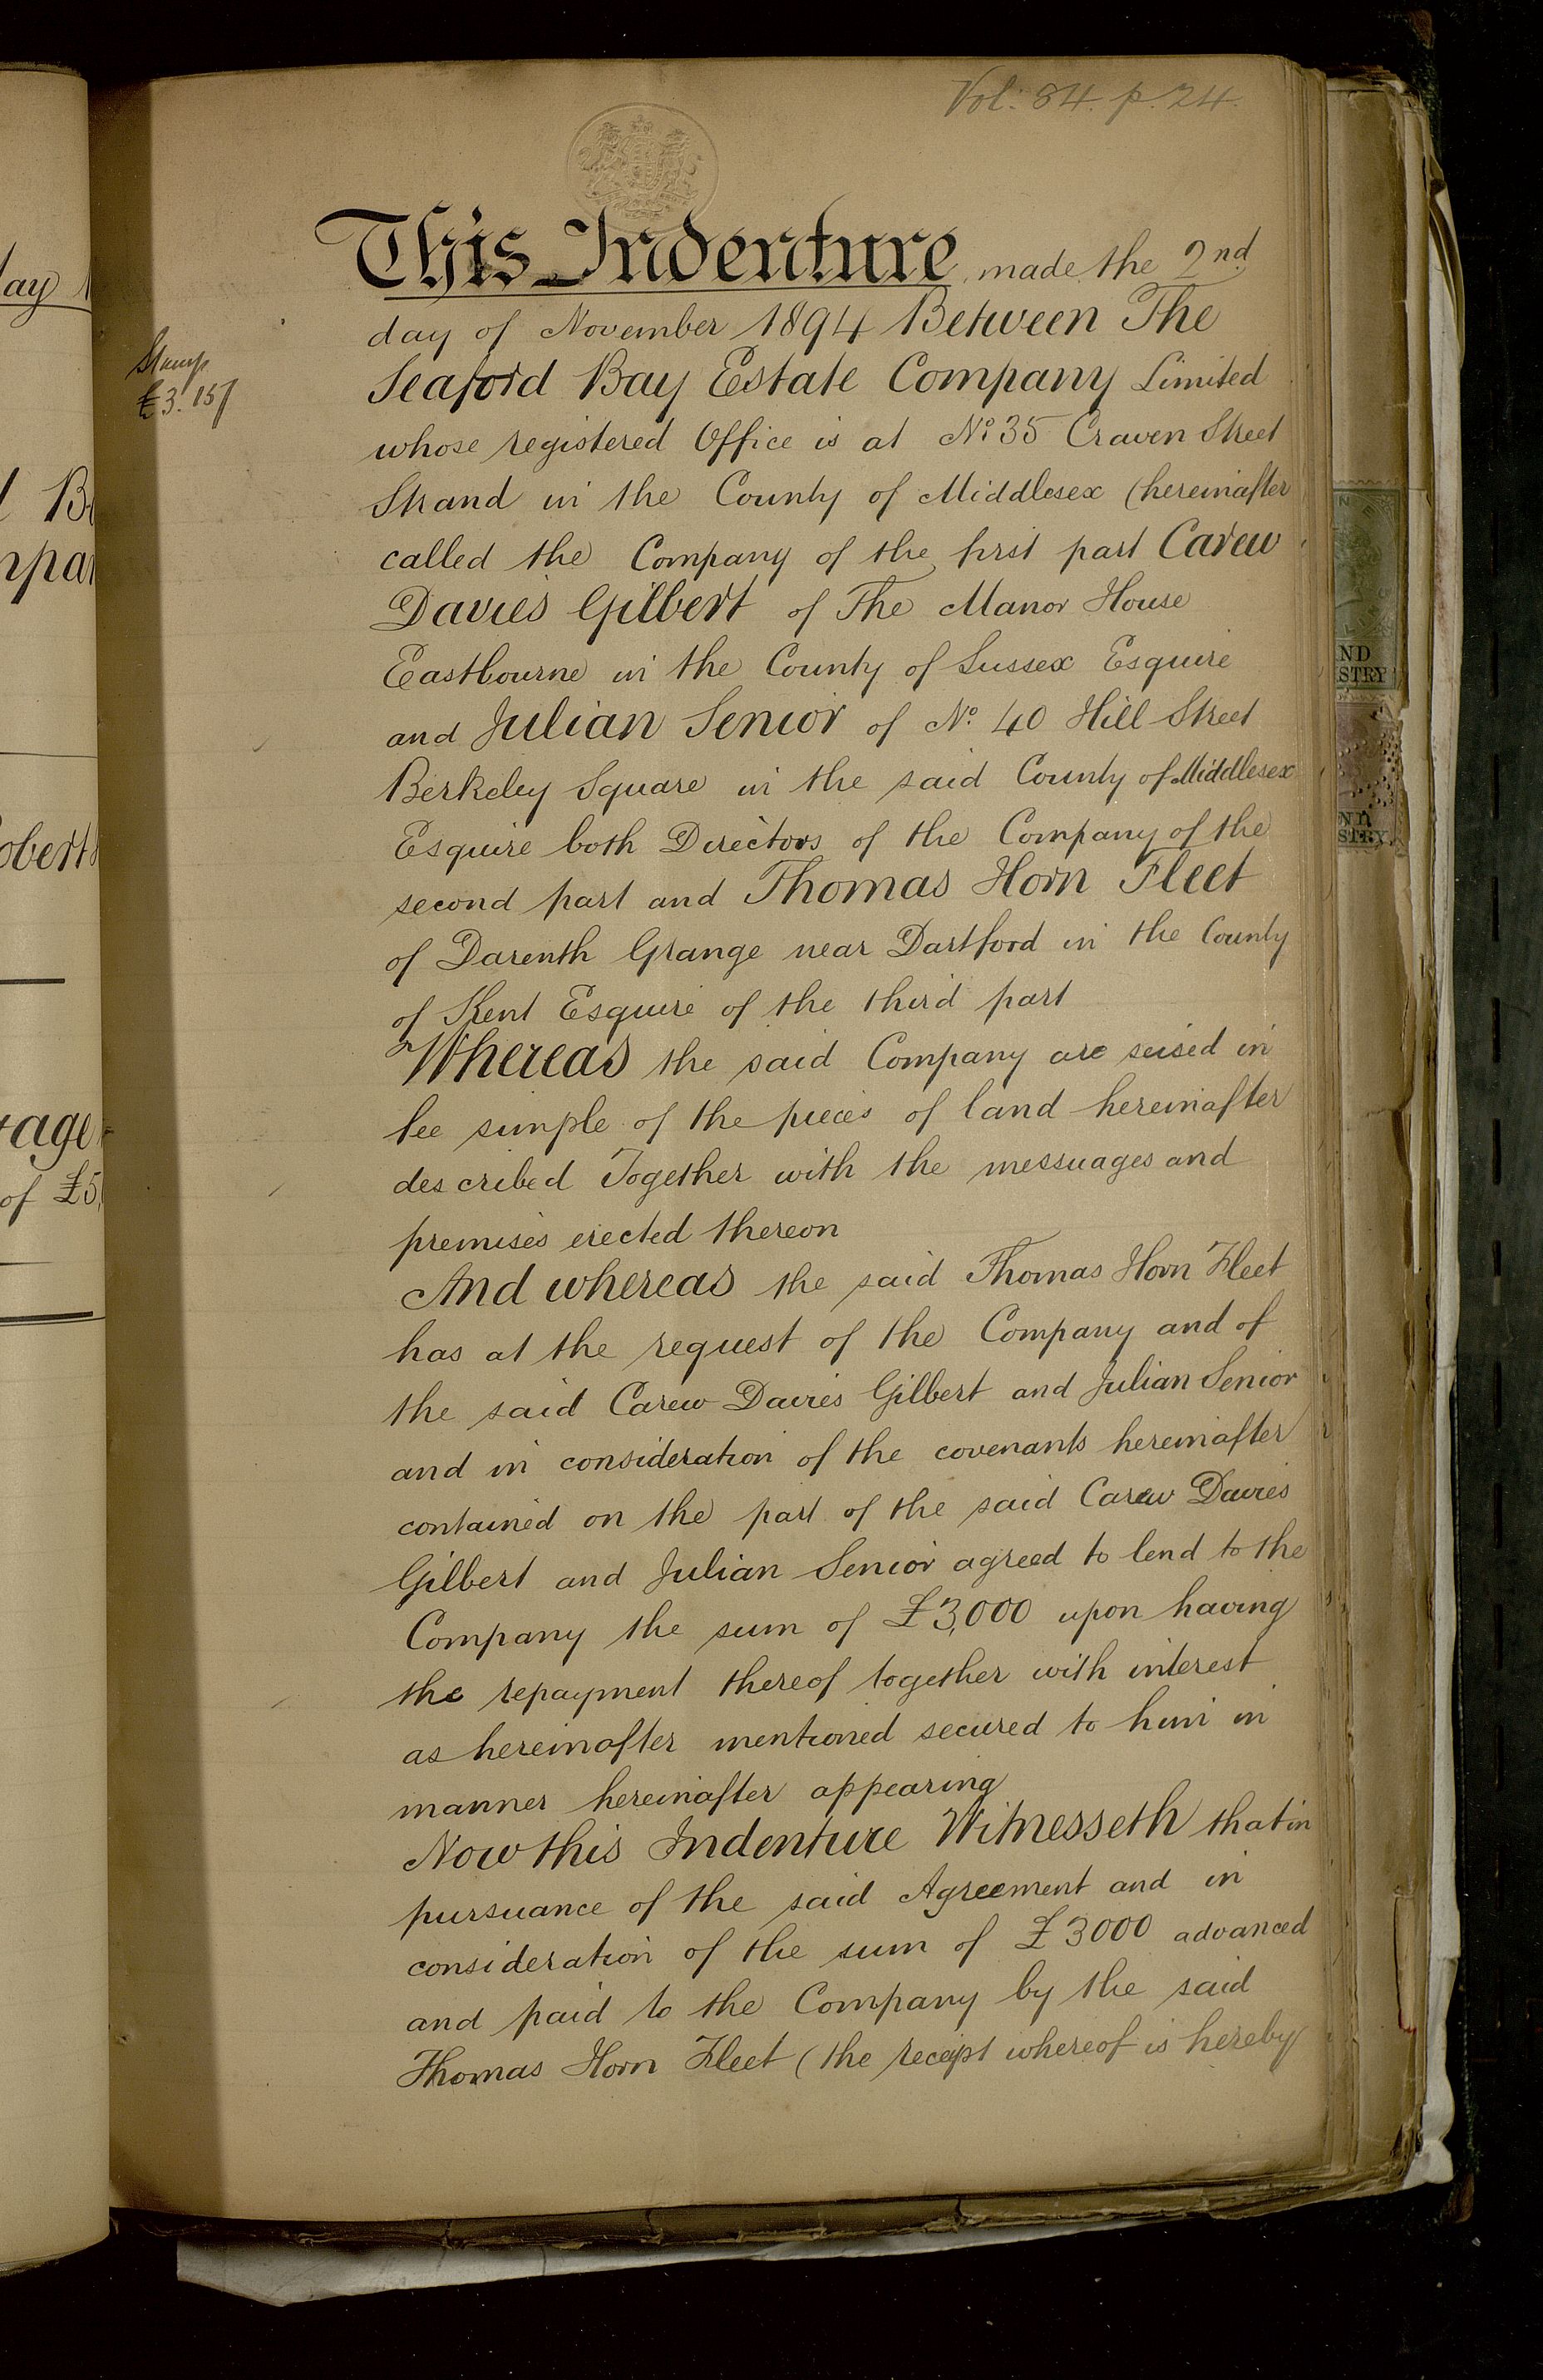 Vol: 84. p. 24.
This Indenture made the 2nd
day of November 1894 Between The
Seaford Bay Estate Company Limited
Stamp
£3.15/
whose registered Office is at No 35 Craven Street
Strand in the County of Middlesex (hereinafter
called the Company of the first part Carew
Davies Gilbert of The Manor House
Eastbourne in the County of Sussex Esquire
and Julian Senior of No. 40 Hill Street
Berkeley Square in the said County of Middlesex
Esquire both Directors of the Company of the
second part and Thomas Horn Fleet
of Darenth Grange near Dartford in the County
of Kent Esquire of the third part
Whereas the said Company are seised in
fee simple of the pieces of land hereinafter
described Together with the messuages and
premises erected thereon
And whereas the said Thomas Horn Fleet
has at the request of the Company and of
the said Carew Davies Gilbert and Julian Senior
and in consideration of the covenants hereinafter
contained on the part of the said Carew Davies
Gilbert and Julian Senior agreed to lend to the
Company the sum of £3,000 upon having
the repayment thereof together with interest
as hereinafter mentioned secured to him in
manner hereinafter appearing
Now this Indenture Witnesseth that in
pursuance of the said Agreement and in
consideration of the sum of £3000 advanced
and paid to the Company by the said
Thomas Horn Fleet (the receipt whereof is hereby